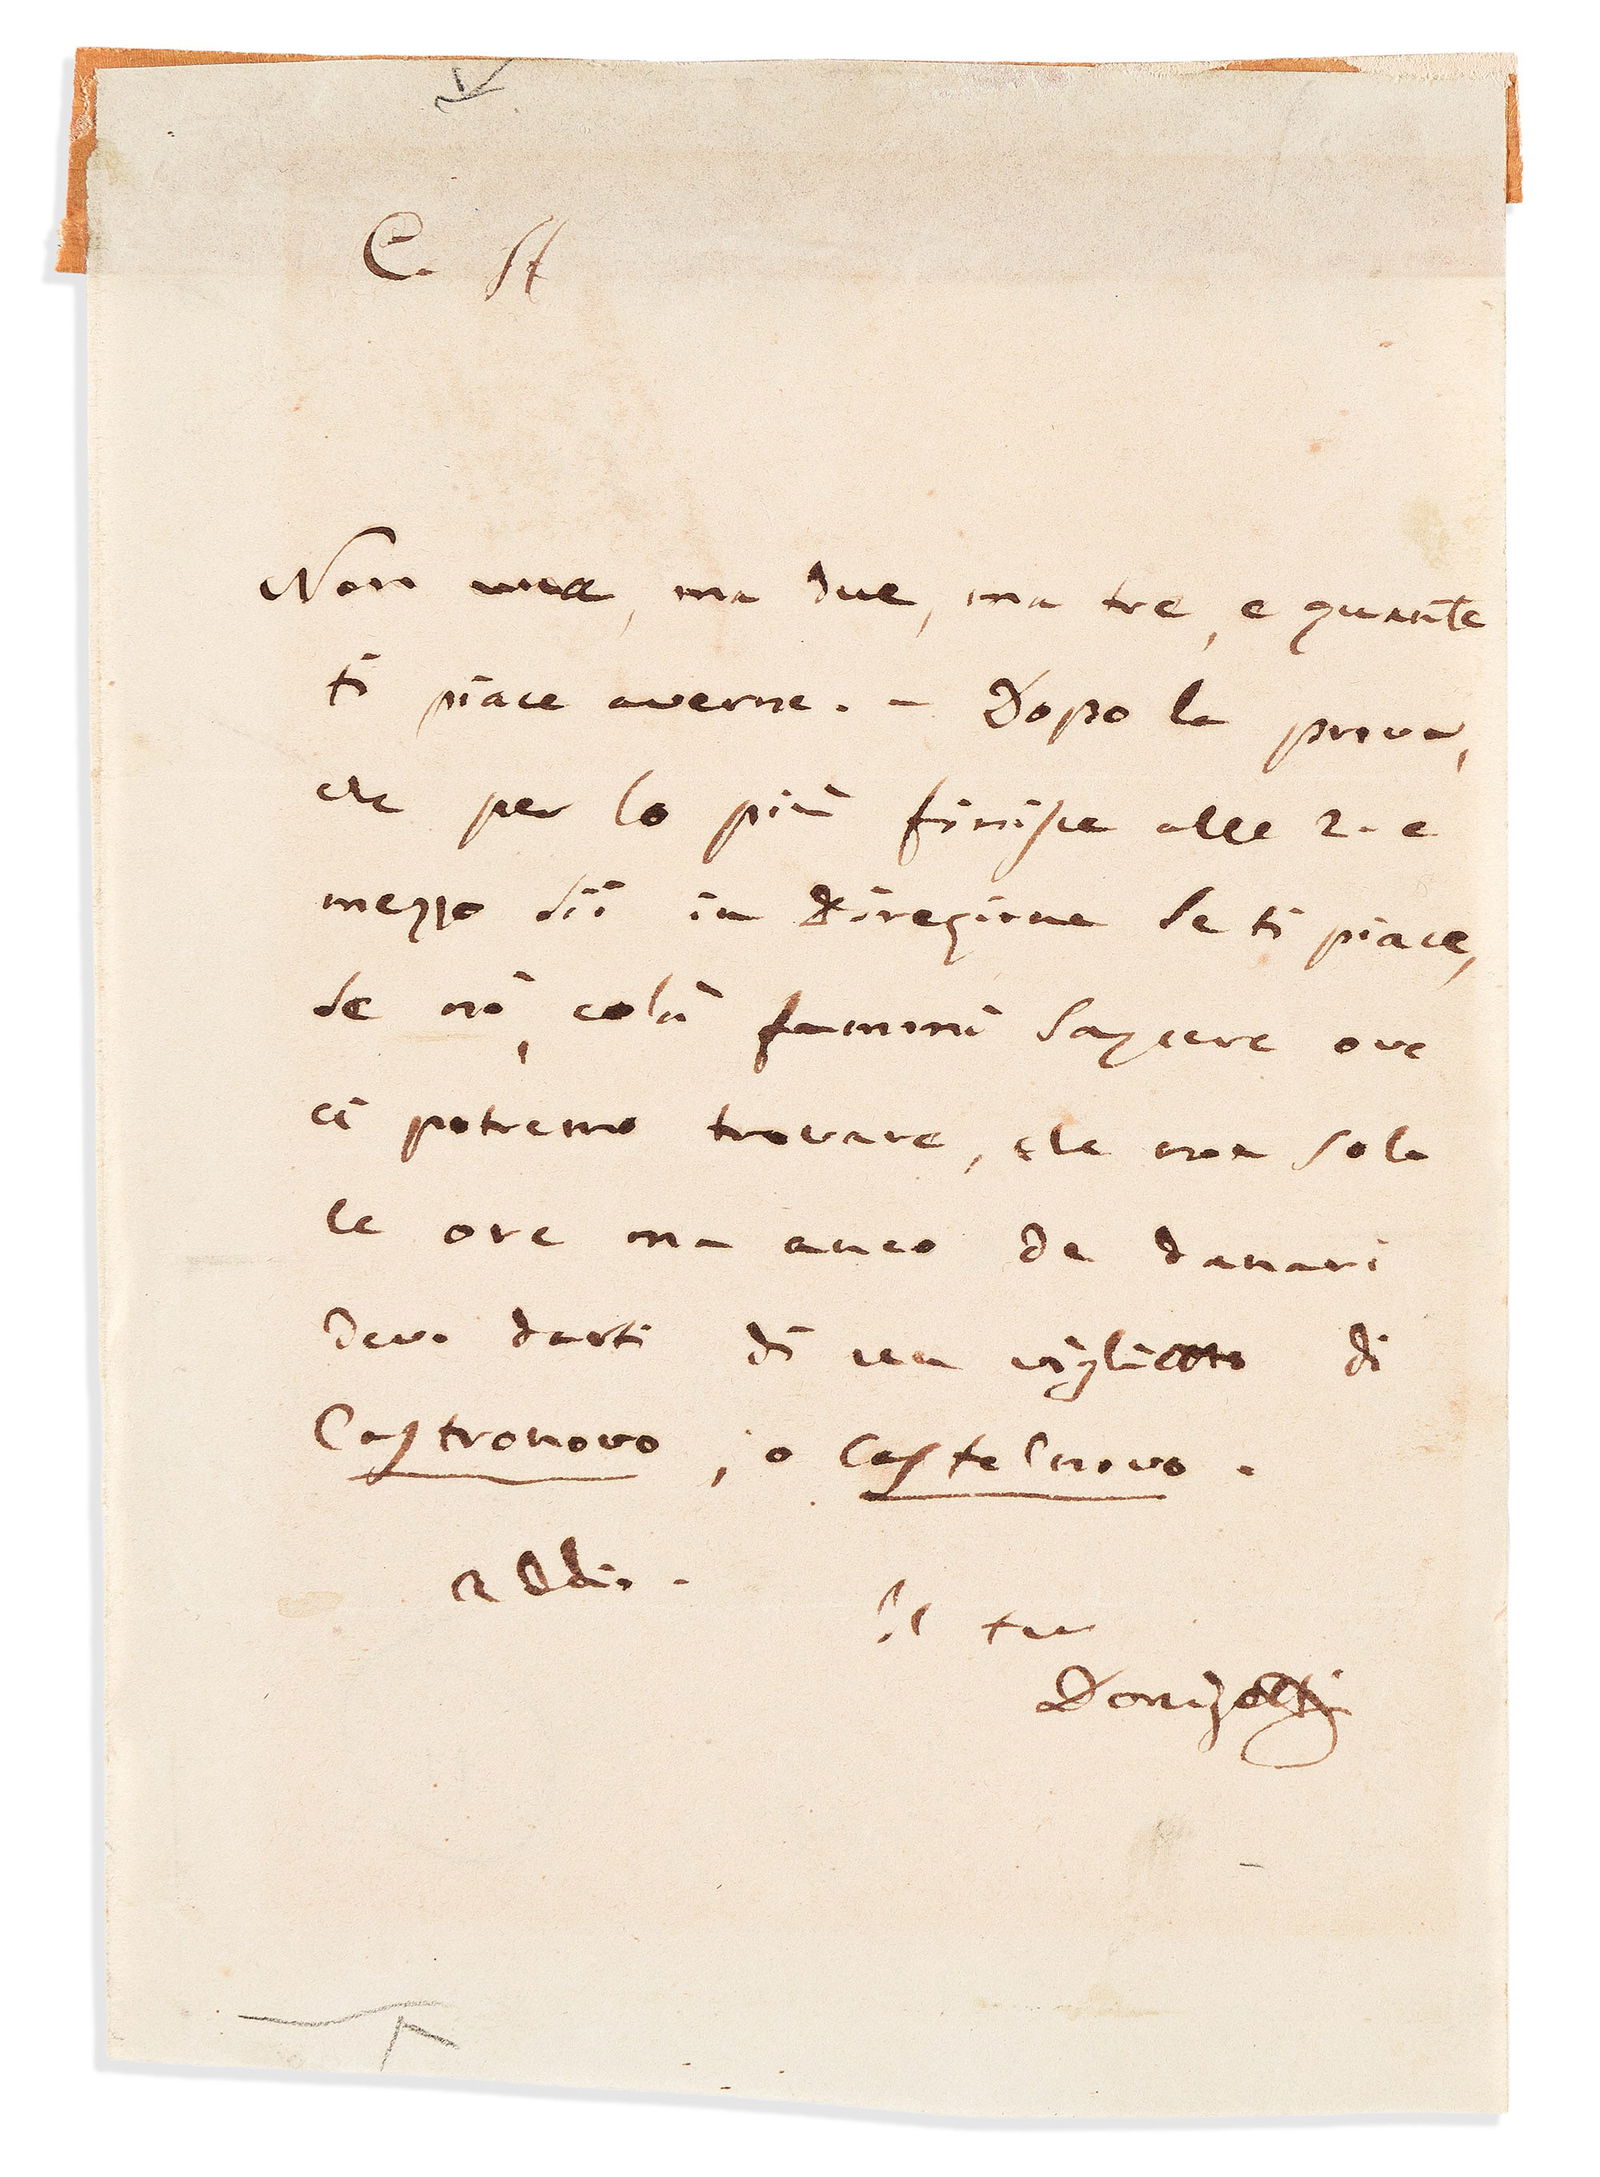 C. A
Non una, ma due, ma tre, e quante
ti piace averne. - Dopo la prova,
che per lo più finisce alle 2. e
mezzo dii in Direzione se ti piace,
se nò, colà fammi sapere ove
ci potremo trovare, che non solo
le ore ma anco de danari
devo darti di un viglietto di
Castronovo, o Castelnovo.
Addio.
Il tuo
Donizetti